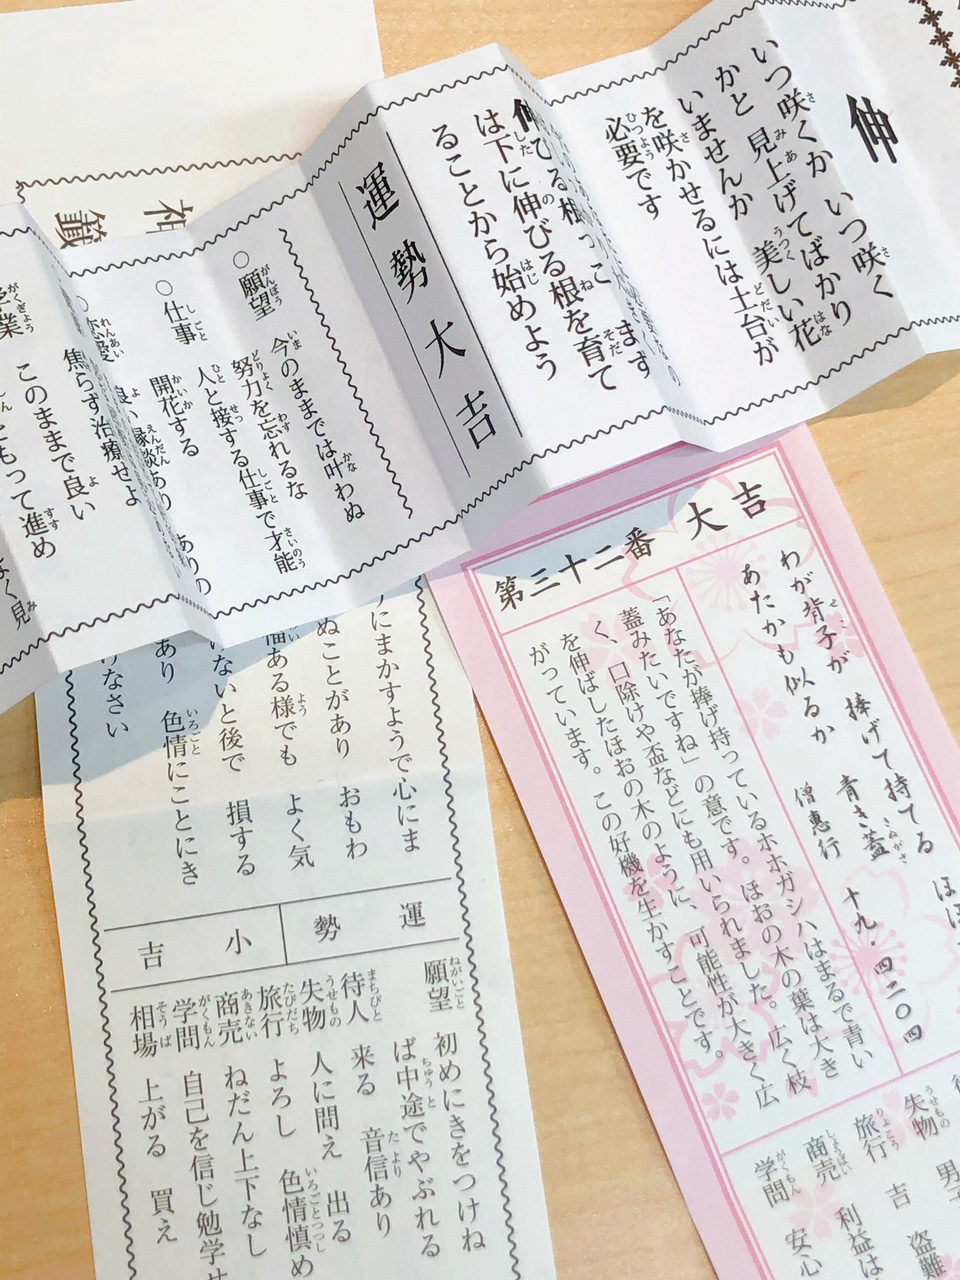 伸
いつ咲くか いつ咲く
かと 見上げてばかり
いませんか 美しい花
を咲かせるには土台が
必要です
は下に伸びる根を育て
ることから始めよう
運勢大吉
○願望 今のままでは叶わぬ
努力を忘れるな
○仕事 人と接する仕事で才能
開花する
焦らず治療せよ
このままで良い
もって進め
第三十二番 大吉
わが背子が 捧げて持てる
あたかも似るか 青き蓋
僧恵行 十九・四二〇四
「あなたが捧げ持っているホホガシハはまるで青い
蓋みたいですね」の意です。ほおの木の葉は大き
く、口除けや盃などにも用いられました。広く枝
を伸ばしたほおの木のように、可能性が大きく広
がっています。この好機を生かすことです。
失物
旅行 吉 盗難
商売 利益は
学問 安心
にまかすようで心にま
ぬことがあり おもわ
ある様でも よく気
いないと後で 損する
あり 色情にことにき
けなさい
運勢 小吉
願望 初めにきをつけね
ば中途でやぶれる
待人 来る 音信あり
失物 人に問え 出る
旅行 よろし 色情慎め
商売 ねだん上下なし
学問 自己を信じ勉学
相場 上がる 買え